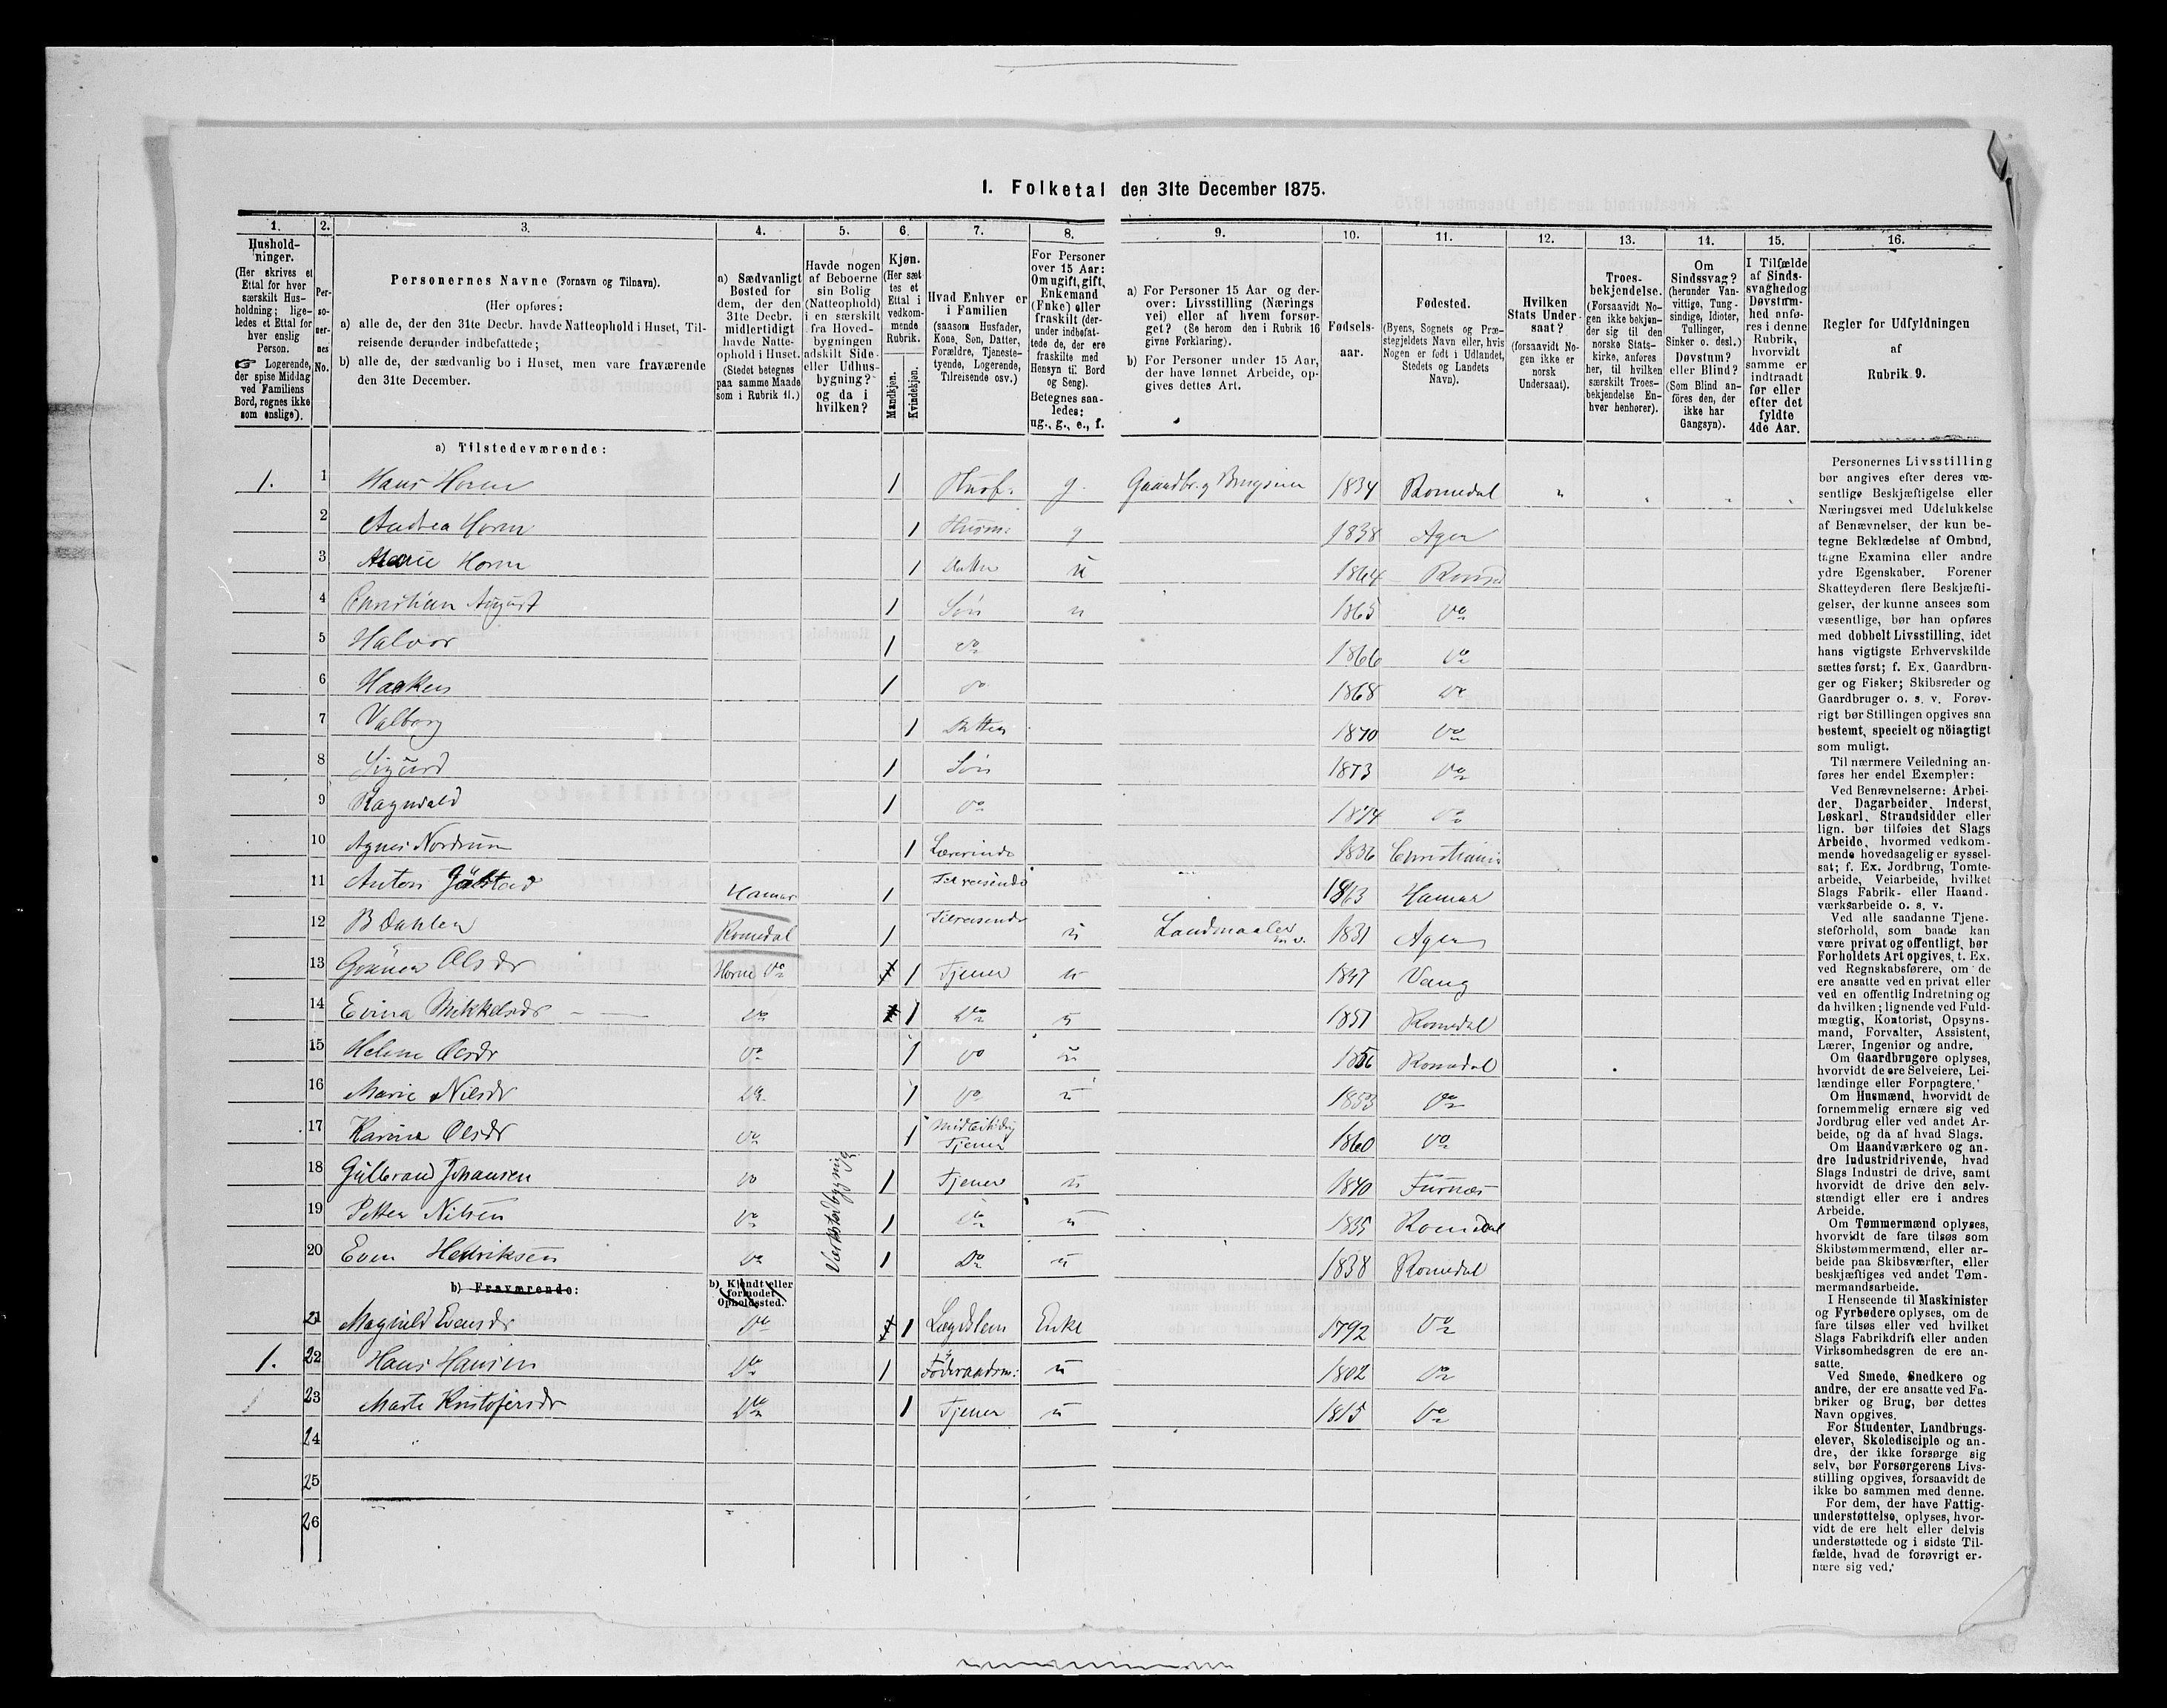 I. Folketal den 31te December 1875.
1. 2. 3. 4. 5. 6. 7. 8. 9. 10. 11. 12. 13. 14. 15. 16.
Hushold-
ninger.
(Her skrives et
Ettal for hver
særskilt Hus-
holdning; lige-
ledes et Ettal for
hver enslig
Person.
☞ Logerende,
der spise Middag
ved Familiens
Bord, regnes ikke
som enslige).
Per-
so-
ner-
nes
No.
Personernes Navne (Fornavn og Tilnavn).
(Her opføres:
a) alle de, der den 31te Decbr. havde Natteophold i Huset, Til-
reisende derunder indbefattede;
b) alle de, der sædvanlig bo i Huset, men vare fraværende
den 31te December.
a) Sædvanligt
Bosted for
dem, der den
31te Decbr.
midlertidigt
havde Natte-
ophold i Huset.
(Stedet betegnes
paa samme Maade
som i Rubrik 11.)
Havde nogen
af Beboerne
sin Bolig
(Natteophold)
i en særskilt
fra Hoved-
bygningen
adskilt Side-
eller Udhus-
bygning?
og da i
hvilken?
Kjøn.
(Her sæt-
tes et
Ettal i
vedkom-
mende
Rubrik.
Mandkjøn.
Kvindekjøn.
Hvad Enhver er
i Familien
(saasom Husfader,
Kone, Søn, Datter,
Forældre, Tjeneste-
tyende, Logerende,
Tilreisende osv.)
For Personer
over 15 Aar:
Om ugift, gift,
Enkemand
(Enke) eller
fraskilt (der-
under indbefat-
tede de, der ere
fraskilte med
Hensyn til Bord
og Seng).
Betegnes saa-
ledes:
ug., g., e., f.
a) For Personer 15 Aar og der-
over: Livsstilling (Nærings-
vei) eller af hvem forsør-
get? (Se herom den i Rubrik 16
givne Forklaring).
b) For Personer under 15 Aar,
der have lønnet Arbeide, op-
gives dettes Art.
Fødsels-
aar.
Fødested.
(Byens, Sognets og Præ-
stegjeldets Navn eller, hvis
Nogen er født i Udlandet,
Stedets og Landets
Navn).
Hvilken
Stats Under-
saat?
(forsaavidt No-
gen ikke er
norsk
Undersaat).
Troes-
bekjendelse.
(Forsaavidt No-
gen ikke bekjen-
der sig til den
norske Stats-
kirke, anføres
her, til hvilken
særskilt Troes-
bekjendelse En-
hver henhører).
Om
Sindssvag?
(herunder Van-
vittige, Tung-
sindige, Idioter,
Tullinger,
Sinker o. desl.)
Døvstum?
eller Blind?
(Som Blind an-
føres den, der
ikke har
Gangsyn).
I Tilfælde
af Sinds-
svaghed og
Døvstum-
hed anfø-
res i denne
Rubrik,
hvorvidt
samme er
indtraadt
før eller
efter det
fyldte
4de Aar.
Regler for Udfyldningen
af
Rubrik 9.
a) Tilstedeværende:
1. 1 Hans Horne 1 Husf. g. Gaardbr. og 1834 Romedal
2 Andrea Horne 1 Husm: g 1838 Ager
3 Horne 1 Datter u 1864 Romed
4 Christian August 1 Søn u 1865 Do
5 Halvor 1 Do 1866 Do
6 Haaken 1 Do 1868 Do
7 Valborg 1 Datter 1870 Do
8 Sigurd 1 Søn 1873 Do
9 Ragnvald 1 Do 1874 Do
10 Agnes Nordrum 1 Lærerinde 1836 Christiania
11 Anton Hamar 1 Tilreisende 1863 Hamar
12 B Dahlen Romedal 1 Tilreisende u Landmaaler 1831 Ager
13 Olsdr Horne Do 1 Tjener u 1847 Vang
14 Mikkelsdr Do 1 Do u 1857 Romedal
15 Helene Olsdr Do 1 Do u 1856 Romedal
16 Marie Nilsdr Do 1 Do u 1853 Do
17 Karine Olsdr Do 1 Midlertidig Tjener 1860 Do
18 Gulbrand Johansen Do Værkstedbygning 1 Tjener u 1840 Furnæs
19 Petter Nilsen Do Do 1 Do u 1835 Romedal
20 Even Hedriksen Do 1 Do u 1838 Romedal
b) Fraværende:
b) Kjendt eller
formodet
Opholdssted.
21 Magnild Evensdr Do 1 Lægdslem Enke 1792 Do
1. 22 Hans Hansen Do 1 Föderaadsm: u 1802 Do
23 Marte Kristofersdr Do 1 Tjener u 1815 Do
24
25
26
Personernes Livsstilling
bør angives efter deres væ-
sentlige Beskjæftigelse eller
Næringsvei med Udelukkelse
af Benævnelser, der kun be-
tegne Beklædelse af Ombud,
tagne Examina eller andre
ydre Egenskaber. Forener
Skatteyderen flere Beskjæfti-
gelser, der kunne ansees som
væsentlige, bør han opføres
med dobbelt Livsstilling, idet
hans vigtigste Erhvervskilde
sættes først; f. Ex. Gaardbru-
ger og Fisker; Skibsreder og
Gaardbruger o. s. v. Forøv-
rigt bør Stillingen opgives saa
bestemt, specielt og nöiagtigt
som muligt.
Til nærmere Veiledning an-
føres her endel Exempler:
Ved Benævnelserne: Arbei-
der, Dagarbeider, Inderst,
Løskarl, Strandsidder eller
lign. bør tilføies det Slags
Arbeide, hvormed vedkom-
mende hovedsagelig er syssel-
sat; f. Ex. Jordbrug, Tomte-
arbeide, Veiarbeide, hvilket
Slags Fabrik- eller Haand-
værksarbeide o. s. v.
Ved alle saadanne Tjene-
steforhold, som baade kan
være privat og offentligt, bør
Forholdets Art opgives, t. Ex.
ved Regnskabsførere, om de
ere ansatte ved en privat eller
ved en offentlig Indretning og
da hvilken; lignende ved Fuld-
mægtig, Kontorist, Opsyns-
mand, Forvalter, Assistent,
Lærer, Ingeniør og andre.
Om Gaardbrugere oplyses,
hvorvidt de ere Selveiere, Lei-
lændinge eller Forpagtere.
Om Husmænd, hvorvidt de
fornemmelig ernære sig ved
Jordbrug eller ved andet Ar-
beide, og da af hvad Slags.
Om Haandværkere og an-
dre Industridrivende, hvad
Slags Industri de drive, samt
hvorvidt de drive den selv-
stændigt eller ere i andres
Arbeide.
Om Tømmermænd oplyses,
hvorvidt de fare tilsøs som
Skibstømmermænd, eller ar-
beide paa Skibsværfter, eller
beskjæftiges ved andet Tøm-
mermandsarbeide.
I Henseende til Maskinister
og Fyrbødere oplyses, om de
fare tilsøs eller ved hvilket
Slags Fabrikdrift eller anden
Virksomhedsgren de ere an-
satte.
Ved Smede, Snedkere og
andre, der ere ansatte ved Fa-
briker og Brug, bør dettes
Navn opgives.
For Studenter, Landbrugs-
elever, Skoledisciple og an-
dre, der ikke forsørge sig
selv, bør Forsørgerens Livs-
stilling opgives, forsaavidt de
ikke bo sammen med denne.
For dem, der have Fattig-
understøttelse, oplyses, hvor-
vidt de ere helt eller delvis
understøttede og i sidste Til-
fælde, hvad de forøvrigt er-
nære sig ved.